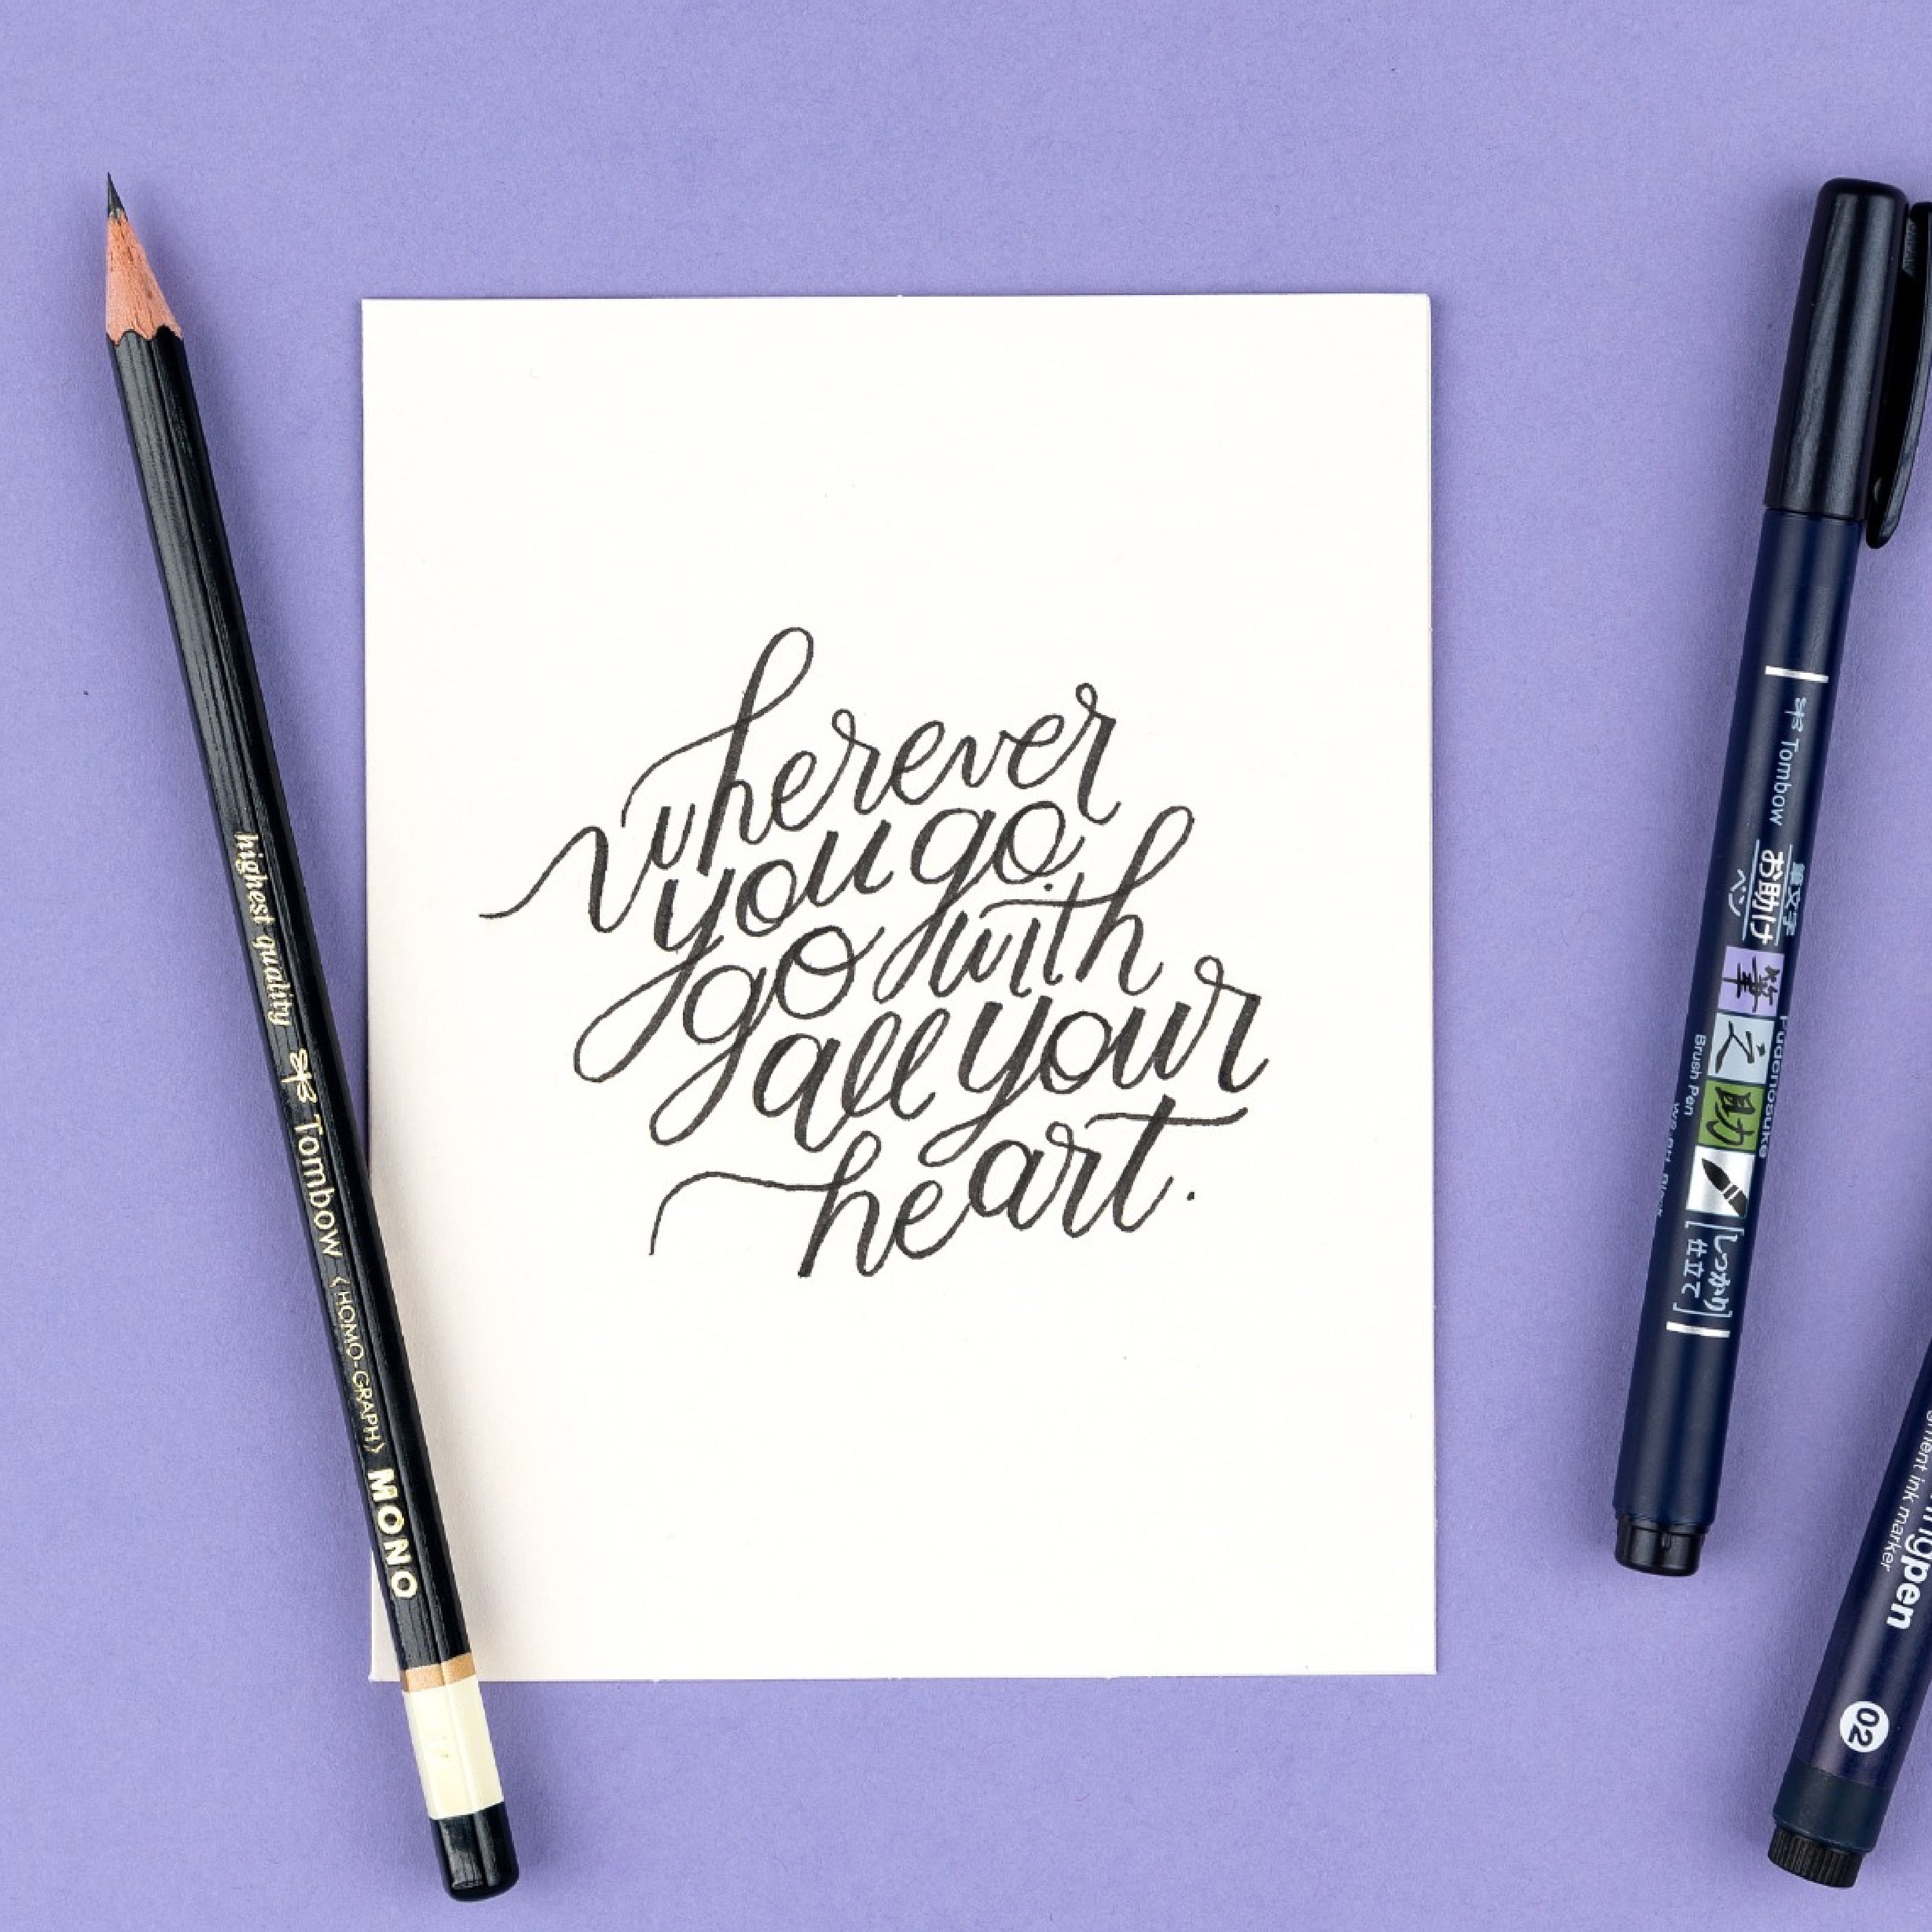 wherever
you go,
go with
all your
heart.
highest quality Tombow <HOMO-GRAPH> MONO
Tombow
筆文字
お助け
ペン
筆之助
Fudenosuke
Brush Pen
[しっかり
仕立て]
pen
ink marker
02